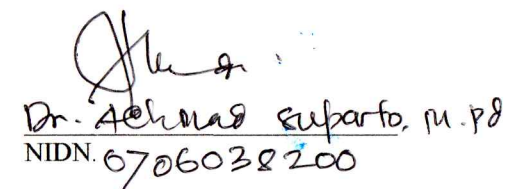 Dr. Achmad Suparto, M.Pd
NIDN. 0706038200